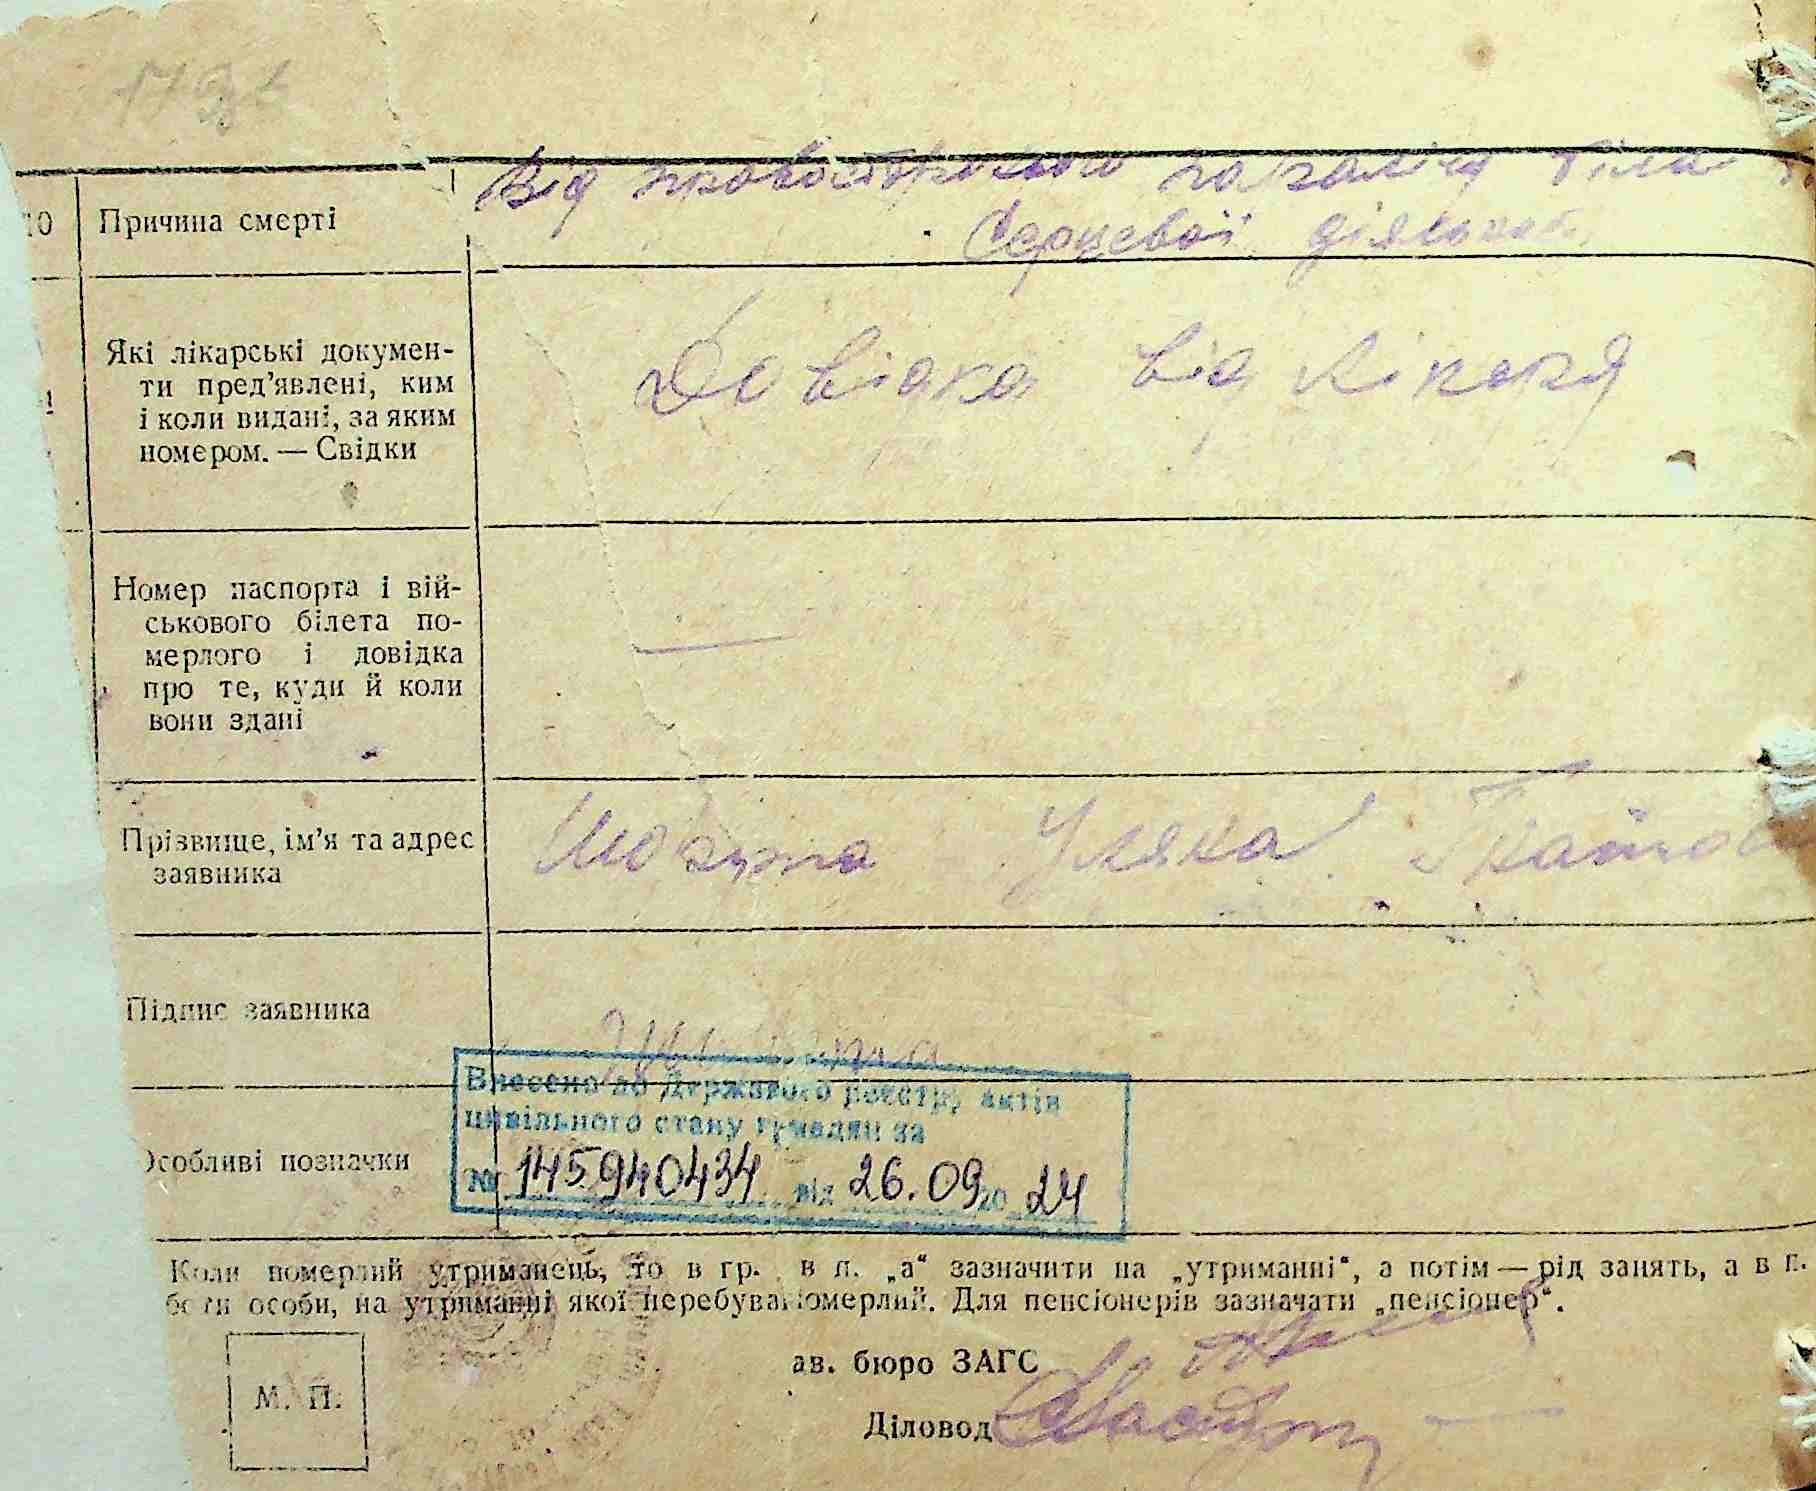 10 Причина смерті
Від правостороннього паралічу тіла
Серцевої діяльност
Які лікарські докумен-
ти пред’явлені, ким
і коли видані, за яким
номером. — Свідки
Довідка від лікаря
Номер паспорта і вій-
ськового білета по-
мерлого і довідка
про те, куди й коли
вони здані
—
Прізвище, ім’я та адрес
заявника
Уляна
Підпис заявника
Внесено до Державного реєстру актів
цивільного стану громадян за
№ 145940434 від 26.09 20 24
Особливі позначки
Коли померлий утриманець, то в гр. в п. „а“ зазначити на „утриманні“, а потім — рід занять, а в п.
особи, на утриманні якої перебував померлий. Для пенсіонерів зазначати „пенсіонер“.
ав. бюро ЗАГС
М. П.
Діловод